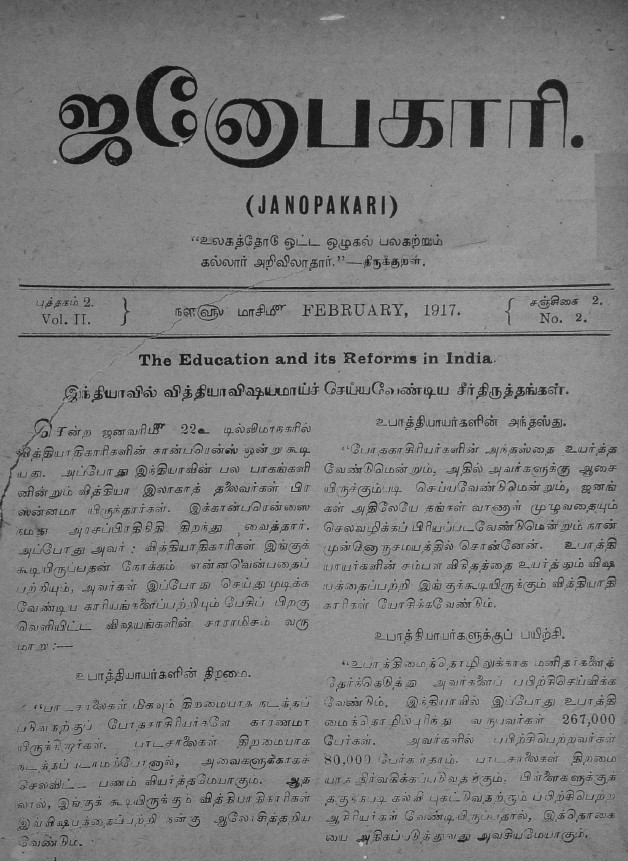 ஜனோபகாரி.
(JANOPAKARI)
"உலகத்தோடு ஒட்ட ஒழுகல் பலகற்றும்
கல்லார் அறிவிலாதார்."—திருக்குறள்.
புத்தகம் 2.
Vol. II.
நளஹு மாசிமீ FEBRUARY, 1917.
சஞ்சிகை 2.
No. 2.
The Education and its Reforms in India
இந்தியாவில் வித்தியாவிஷயமாய்ச் செய்யவேண்டிய சீர்திருத்தங்கள்.
சென்ற ஜனவரிமீ 22உ டில்லிமாநகரில்
வித்தியாதிகாரிகளின் கான்பரென்ஸ் ஒன்று கூடி
யது. அப்போது இந்தியாவின் பல பாகங்களி
னின்றும் வித்தியா இலாகாத் தலைவர்கள் பிர
ஸன்னமா யிருந்தார்கள். இக்கான்பரென்ஸை
நமது அரசப்பிரதிநிதி திறந்து வைத்தார்.
அப்போது அவர் : வித்தியாதிகாரிகள் இங்குக்
கூடியிருப்பதன் நோக்கம் என்னவென்பதைப்
பற்றியும், அவர்கள் இப்போது செய்துமுடிக்க
வேண்டிய காரியங்களைப்பற்றியும் பேசிப் பிறகு
வெளியிட்ட விஷயங்களின் சாராமிசம் வரு
மாறு:—
உபாத்தியாயர்களின் திறமை.
"பாடசாலைகள் மிகவும் திறமையாக நடத்தப்
படுவதற்குப் போதகாசிரியர்களே காரணமா
யிருக்கிறார்கள். பாடசாலைகள் திறமையாக
நடத்தப் படாமற்போனால், அவைகளுக்காகச்
செலவிட்ட பணம் வியர்த்தமேயாகும். ஆத
லால், இங்குக் கூடியிருக்கும் வித்தியாதிகாரிகள்
இவ்விஷயத்தைப்பற்றி நன்கு ஆலோசித்தறிய
வேண்டும்.
உபாத்தியாயர்களின் அந்தஸ்து.
"போதகாசிரியர்களின் அந்தஸ்தை உயர்த்த
வேண்டுமென்றும், அதில் அவர்களுக்கு ஆசை
யிருக்கும்படி செய்யவேண்டுமென்றும், ஜனங்
கள் அதிலேயே தங்கள் வாணாள் முழுவதையும்
செலவழிக்கப் பிரியப்படவேண்டுமென்றும் நான்
முன்னொருசமயத்தில் சொன்னேன். உபாத்தி
யாயர்களின் சம்பள விகிதத்தை உயர்த்தும் விஷ
யத்தைப்பற்றி இங்குக்கூடியிருக்கும் வித்தியாதி
காரிகள் யோசிக்கவேண்டும்.
உபாத்தியாயர்களுக்குப் பயிற்சி.
"உபாத்திமைத்தொழிலுக்காக மனிதர்களைத்
தேர்ந்தெடுத்து அவர்களைப் பயிற்சிசெய்விக்க
வேண்டும். இந்தியாவில் இப்போது உபாத்தி
மைத்தொழில்புரிந்து வருபவர்கள் 267,000
பேர்கள். அவர்களில் பயிற்சிபெற்றவர்கள்
80,000 பேர்கள்தாம். பாடசாலைகள் திறமை
யாக நிர்வகிக்கப்படுவதற்கும். பிள்ளைகளுக்குத்
தகுந்தபடி கல்வி புகட்டுவதற்கும் பயிற்சிபெற்ற
ஆசிரியர்கள் வேண்டியிருப்பதால், இத்தொகை
யை அதிகப்படுத்துவது அவசியமேயாகும்.